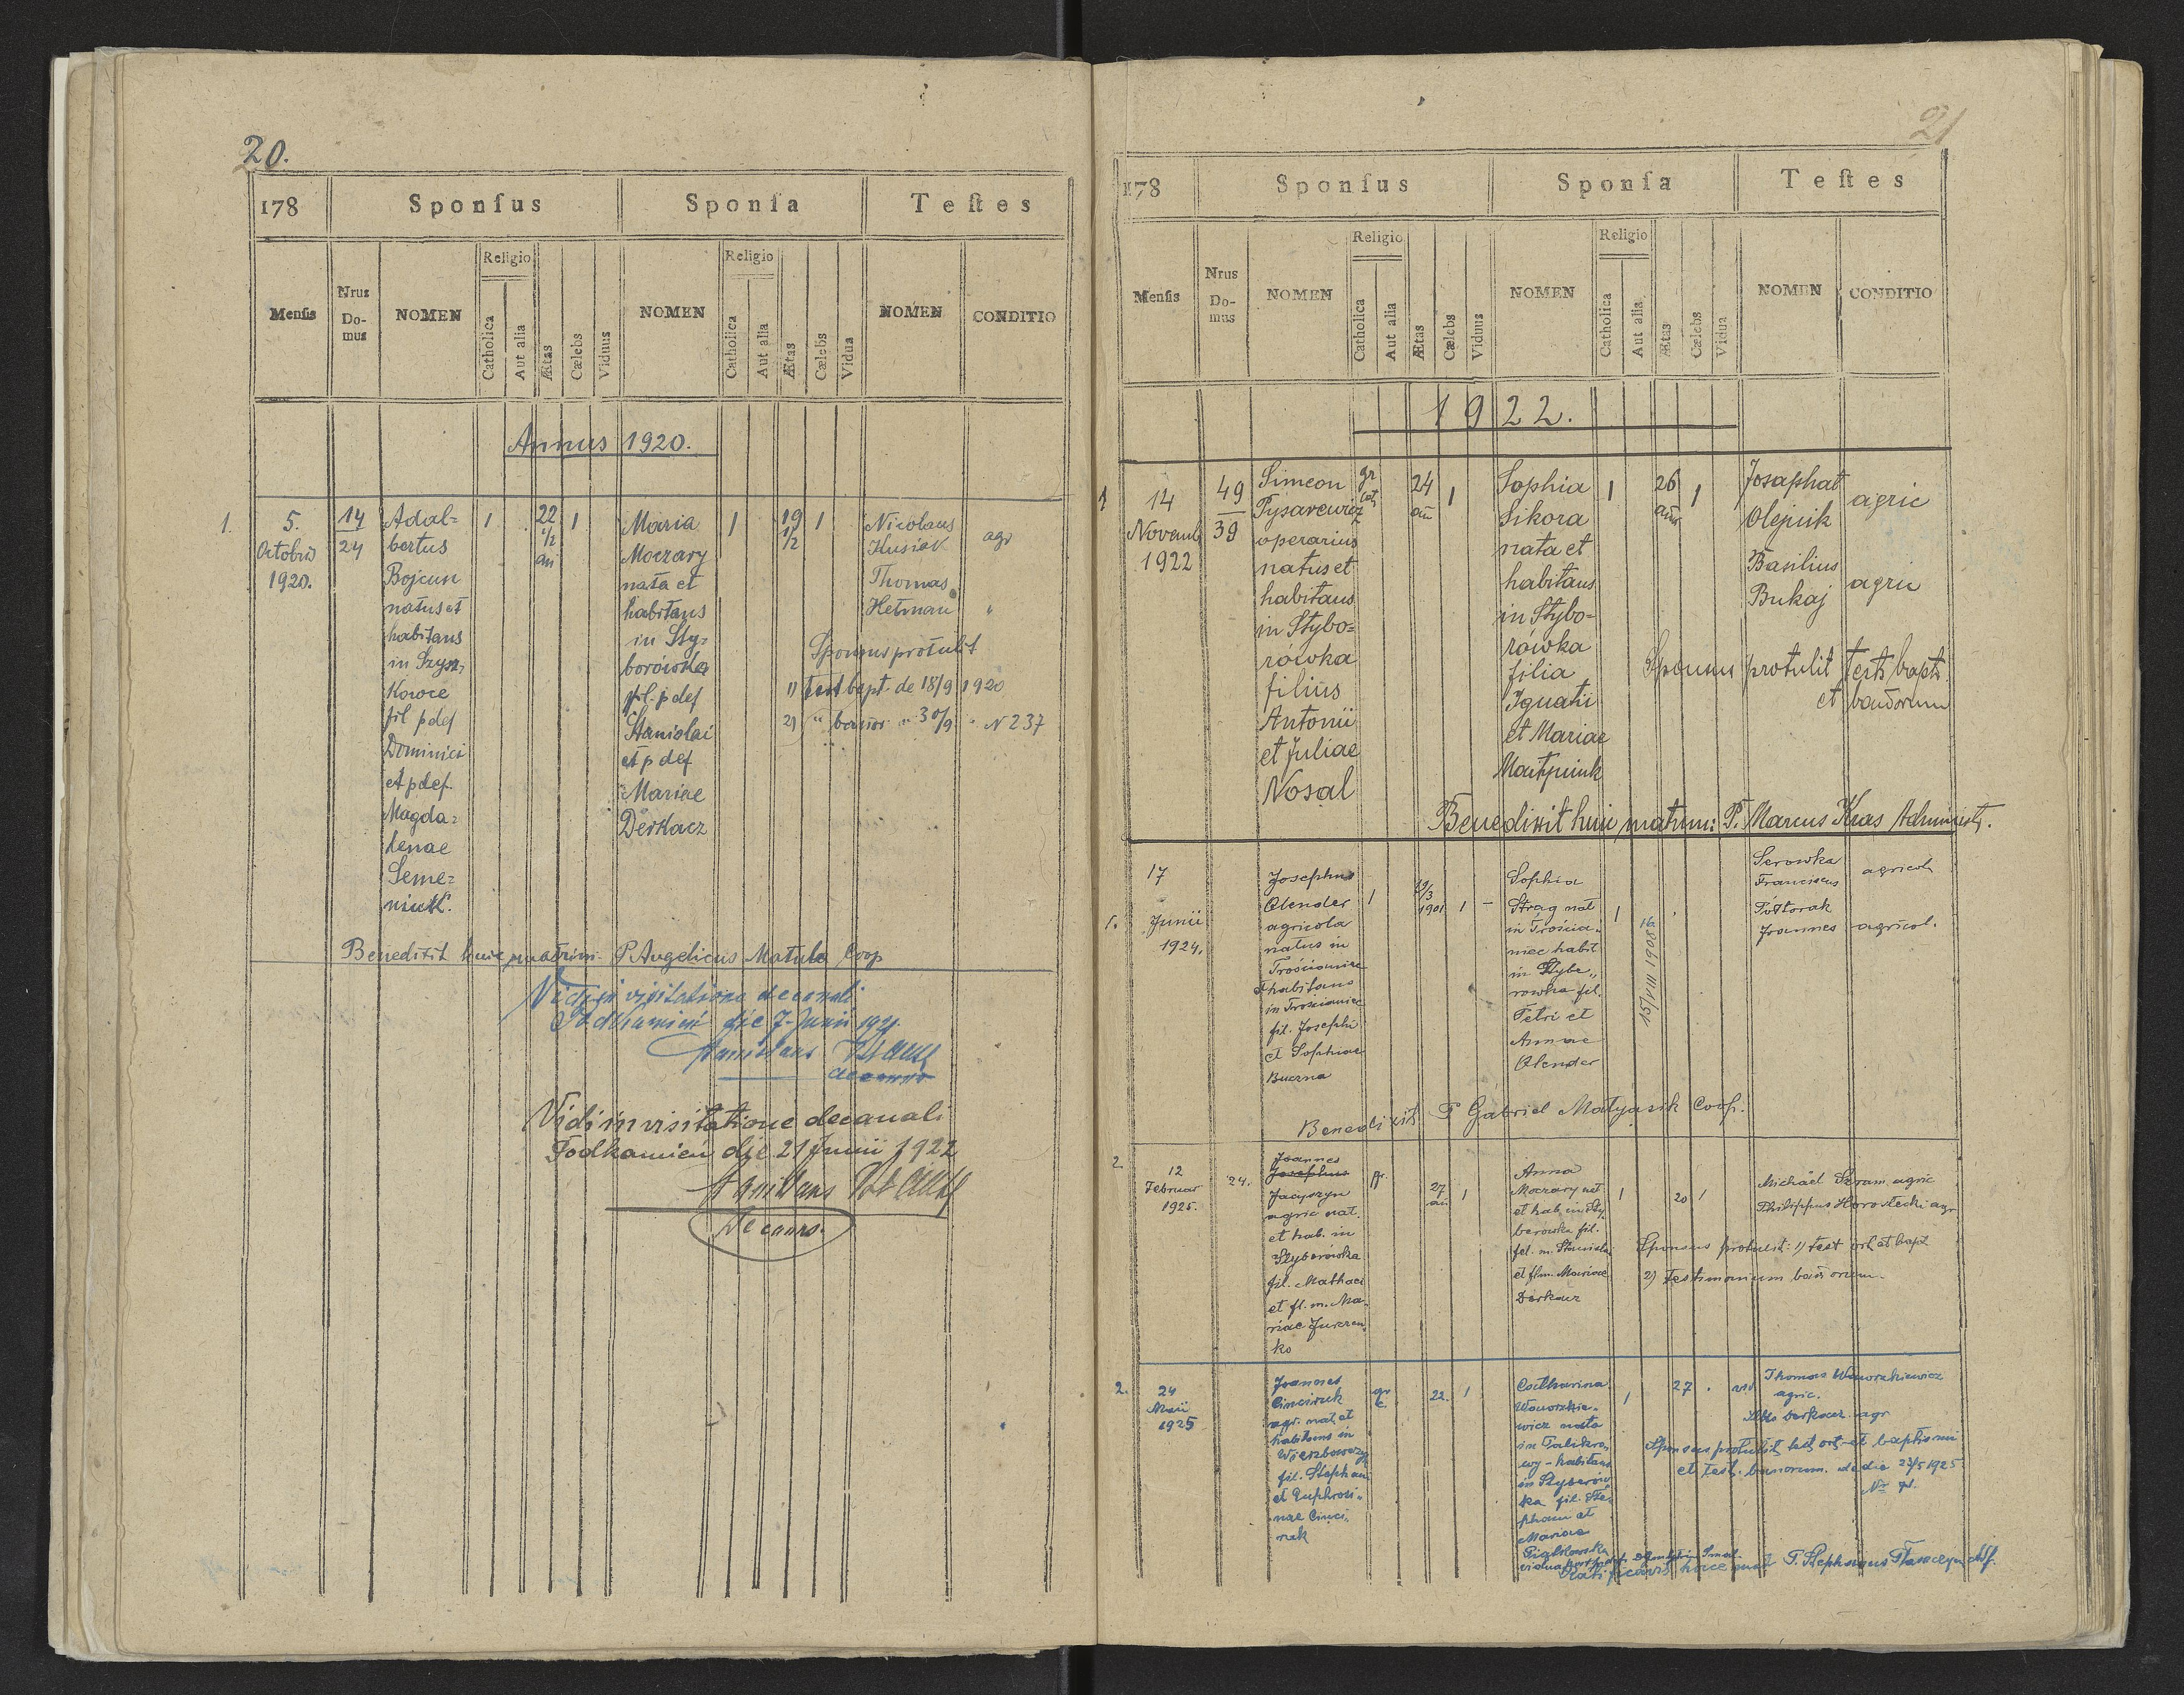 20.
178 Sponſus Sponſa Teſtes
Menſis Nrus Do-mus NOMEN Religio Catholica Aut alia Ætas Cælebs Viduus NOMEN Religio Catholica Aut alia Ætas Cælebs Vidua NOMEN CONDITIO
Annus 1920.
1. 5. Octobris 1920.
14
24
Adal=
bertus
Bojcun
natus et
habitans
in Szysz,
Kowce
fil p def
Dominici
et p def.
Magda=
lenae
Seme=
niuk.
1 22 1/2 an 1
Maria
Moczary
nata et
habitans
in Sty,
borówka
fil. p def
Stanislai
et p def
Mariae
Derkacz
1 19 1/2 1
Nicolaus
Husiak
agr
Thomas
Hetman "
Sponsus protulit
1) test bapt de 18/9 1920
2) " bannor " 30/9 " N 237
Benedixit huic matrim. P. Angelicus Matula Coop
Vidi in visitatione decanali
Podkamień die 7 Junii 1921.
Stanislaus
decanus
Vidi in visitatione decanali
Podkamień die 21 Junii 1922
Stanislaus
Decanus.
21
178 Sponſus Sponſa Teſtes
Menſis Nrus Do-mus NOMEN Religio Catholica Aut alia Ætas Cælebs Viduus NOMEN Religio Catholica Aut alia Ætas Cælebs Vidua NOMEN CONDITIO
1922.
1 14
Novemb
1922
49
39
Simeon
Pysarewicz
operarius
natus et
habitans
in Stybo=
rówka
filius
Antonii
et Juliae
Nosal
gr cat 24 an 1
Sophia
Sikora
nata et
habitans
in Stybo=
rówka
filia
Ignatii
et Mariae
1 26 ann 1
Josaphat
Olejnik
agric
Basilius
Bukaj
agric
Sponsus protulit test. bapt.
et bannorum
Benedixit huic matrim: P. Marcus Kras Administr.
1. 17
Junii
1924.
Josephus
Olender
agricola
natus in
Trościaniec
et habitans
in Trościaniec
fil. Josephi
et Sophiae
Buczna
1 19/3 1901 1 –
Sophia
Strąg nat
in Trościa„
niec habit
in Stybo„
rowka fil.
Petri et
Annae
Olender
1 16 15/VIII 1908
Serowka
Franciscus
agricol
Półtorak
Joannes
agricol.
Benedixit P Gabriel Matyasik Coop.
2. 12
Februar
1925.
24.
Joannes
Josephus
Jacyszyn
agric nat.
et hab. in
Styborówka
fil. Mathaei
et fl. m. Ma„
riae Jurzen„
ko
gr. 27 an 1
Anna
Moczary nat
et hab. in Sty„
borowka fil.
fel. m. Stanislai
et flm. Mariae
Derkacz
1 20 1
Michaël Szram. agric
Philippus Horostecki agr
Sponsus protulit: 1) test ort et bapt
2) testimonium bannorum.
2. 24
Maii
1925
Joannes
Cinciruk
agr. nat. et
habitans in
Wierzbowczyk
fil. Stephani
et Euphrosi„
nae Cinci„
ruk
gr c. 22. 1
Catharina
Waworzkie„
wicz nata
in Palikro„
wy – habitans
in Styborów
ka fil. Ste
phani et
Mariae
1 27 . vid
Thomas Waworzkiewicz
agric.
Derkacz agr
Sponsus protulit test ort et baptismi
et test. bannorum de die 23/5 1925
Ratificavit hocce mat P. Stephanus